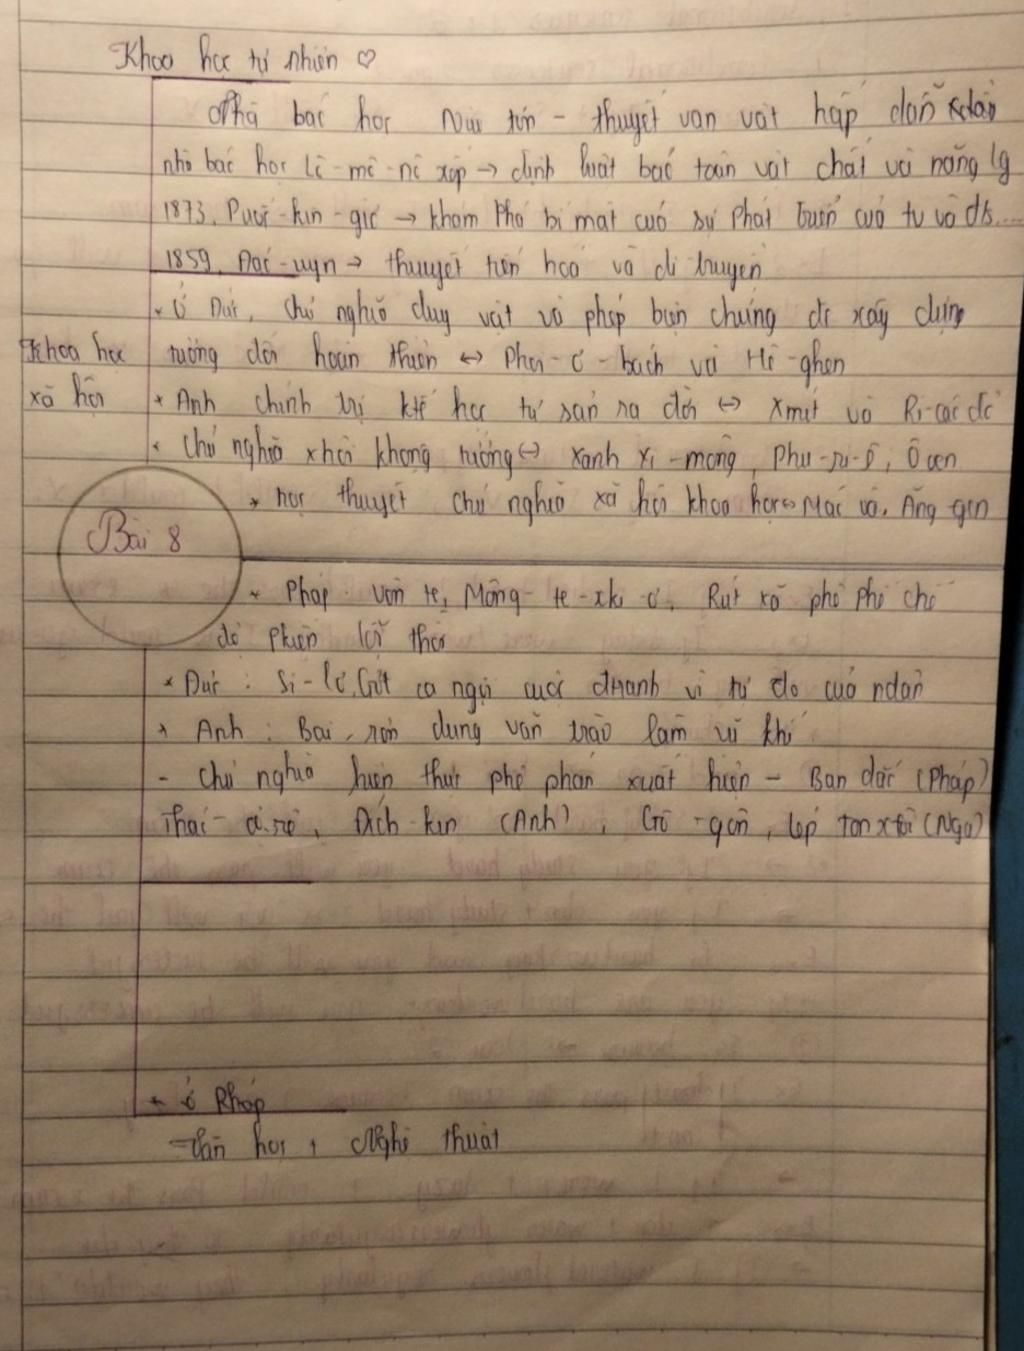 Khoa học tự nhiên ♡
Nhà bác học Niu tơn - thuyết vạn vật hấp dẫn
nhà bác học Lô-mô-nô xốp → định luật bảo toàn vật chất và năng lg
1873. Puốc-kin-giơ → khám phá bí mật của sự phát triển của tv và đv...
1859. Đác-uyn → thuyết tiến hoá và di truyền
* Ở Đức, chủ nghĩa duy vật và phép biện chứng đc xây dựng
tương đối hoàn thiện ↔ Phơi-ơ-bách và Hê-ghen
Khoa học
xã hội
* Anh chính trị ktế học tư sản ra đời ↔ Xmít và Ri-các đô
* Chủ nghĩa xhội không tưởng ↔ Xanh xi-mông, Phu-ri-ê, Ô oen
* học thuyết chủ nghĩa xã hội khoa học ↔ Mác và Ăng ghen
Bài 8
* Pháp: Vôn te, Mông-te-xki-ơ, Rút xô phê phá chế
độ phkiến lỗi thời
* Đức: Si-lơ, Gớt ca ngợi cuộc đtranh vì tự do của ndân
* Anh: Bai-rơn dùng văn trào làm vũ khí
- Chủ nghĩa hiện thực phê phán xuất hiện - Ban dắc (Pháp)
Thác-cơ-rê, Đích-kin (Anh), Gô-gôn, Lép tonxtôi (Nga)
* ở Pháp
Văn học + Nghệ thuật